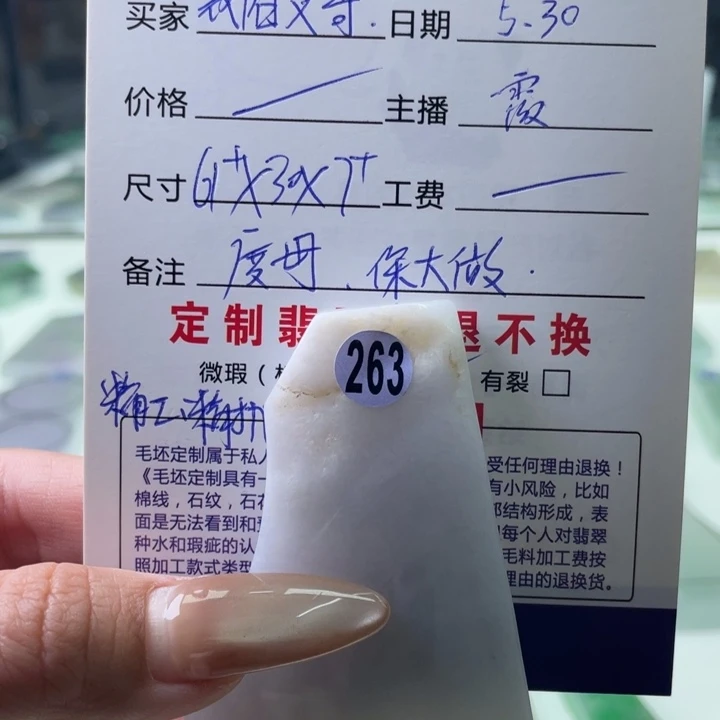 买家 日期 5.30
价格 主播 霞
尺寸 61+X30X7+ 工费
备注 度母、保大做.
定制翡 退不换
微瑕( 有裂 □
263
精工、精抛
毛坯定制属于私 受任何理由退换!
《毛坯定制具有一 有小风险,比如
棉线,石纹,石 部结构形成,表
面是无法看到和 每个人对翡翠
种水和瑕疵的认 毛料加工费按
照加工款式类型 理由的退换货。